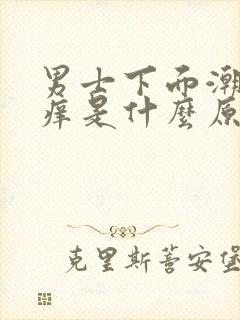 男士下而潮
痒是什麼原
克里斯蒂安堡